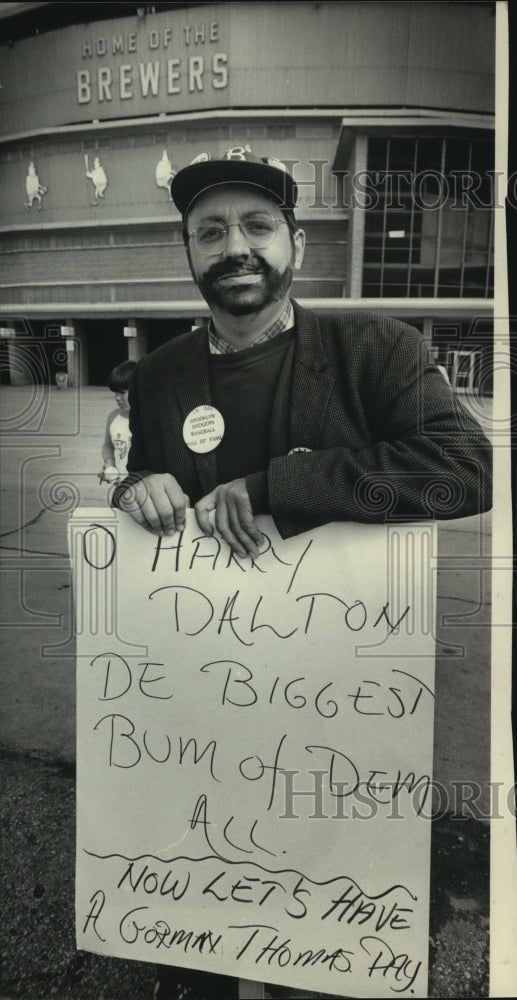 HOME OF THE
BREWERS
B
BROOKLYN
DODGERS
BASEBALL
HALL OF FAME
O HARRY
DALTON
DE BIGGEST
BUM OF DEM
ALL.
NOW LET'S HAVE
A GORMAN THOMAS DAY.
HISTORIC
HISTORIC